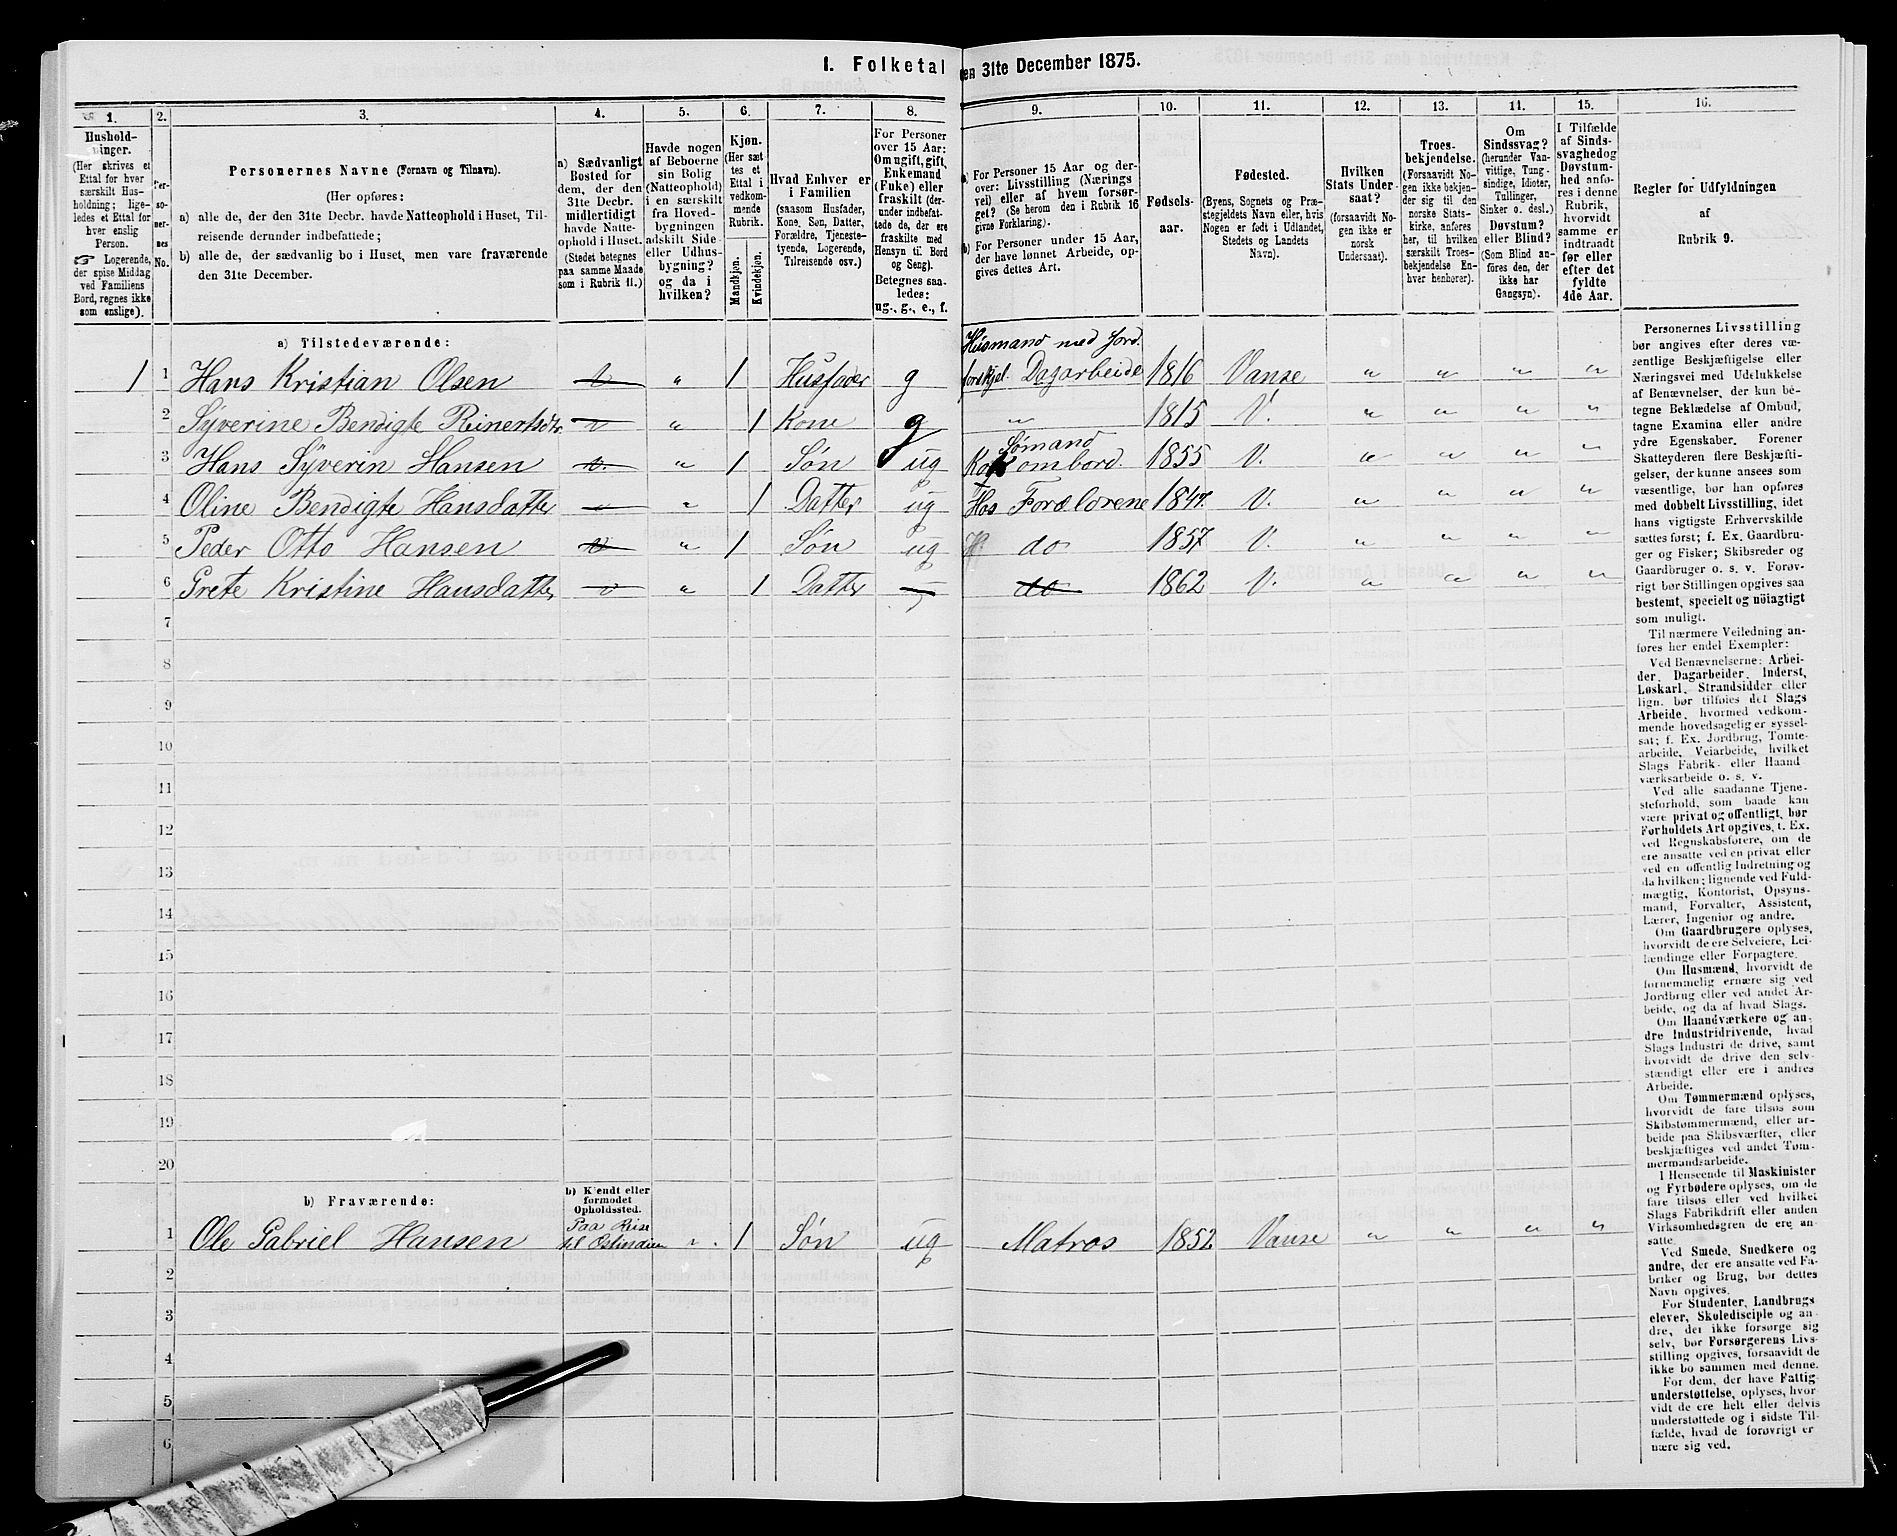 I. Folketal den 31te December 1875.
1. 2. 3. 4. 5. 6. 7. 8. 9. 10. 11. 12. 13. 11. 15. 16.
Hushold-
ninger.
(Her skrives et
Ettal for hver
særskilt Hus-
holdning; lige-
ledes et Ettal for
hver enslig
Person.
☞ Logerende,
der spise Middag
ved Familiens
Bord, regnes ikke
som enslige).
Per-
so-
ner-
nes
No.
Personernes Navne (Fornavn og Tilnavn).
(Her opføres:
a) alle de, der den 31te Decbr. havde Natteophold i Huset, Til-
reisende derunder indbefattede;
b) alle de, der sædvanlig bo i Huset, men vare fraværende
den 31te December.
a) Sædvanligt
Bosted for
dem, der den
31te Decbr.
midlertidigt
havde Natte-
ophold i Huset.
(Stedet betegnes
paa samme Maade
som i Rubrik 11.)
Havde nogen
af Beboerne
sin Bolig
(Natteophold)
i en særskilt
fra Hoved-
bygningen
adskilt Side-
eller Udhus-
bygning?
og da i
hvilken?
Kjøn.
(Her sæt-
tes et
Ettal i
vedkom-
mende
Rubrik.
Mandkjøn.
Kvindekjøn.
Hvad Enhver er
i Familien
(saasom Husfader,
Kone, Søn, Datter,
Forældre, Tjeneste-
tyende, Logerende,
Tilreisende osv.)
For Personer
over 15 Aar:
Om ugift, gift,
Enkemand
(Enke) eller
fraskilt (der-
under indbefat-
tede de, der ere
fraskilte med
Hensyn til Bord
og Seng).
Betegnes saa-
ledes:
ug., g., e., f.
a) For Personer 15 Aar og der-
over: Livsstilling (Nærings
vei) eller af hvem forsør-
get? (Se herom den i Rubrik 16
givne Forklaring).
b) For Personer under 15 Aar,
der have lønnet Arbeide, op-
gives dettes Art.
Fødsels-
aar.
Fødested.
(Byens, Sognets og Præ-
stegjeldets Navn eller, hvis
Nogen er født i Udlandet,
Stedets og Landets
Navn).
Hvilken
Stats Under-
saat?
(forsaavidt No-
gen ikke er
norsk
Undersaat).
Troes-
bekjendelse.
(Forsaavidt No-
gen ikke bekjen-
der sig til den
norske Stats-
kirke, anføres
her, til hvilken
særskilt Troes-
bekjendelse En-
hver henhører).
Om
Sindssvag?
(herunder Van-
vittige, Tung-
sindige, Idioter,
Tullinger,
Sinker o. desl.)
Døvstum?
eller Blind?
(Som Blind an-
føres den, der
ikke har
Gangsyn).
I Tilfælde
af Sinds-
svaghed og
Døvstum-
hed anfø-
res i denne
Rubrik,
hvorvidt
samme er
indtraadt
før eller
efter det
fyldte
4de Aar.
Regler for Udfyldningen
af
Rubrik 9.
a) Tilstedeværende:
Husmand med Jord
1 1 Hans Kristian Olsen v " 1 Husfader g forskjel. Dagarbeide 1816 Vanse " " " "
2 Syverine Bendigte Reinertsdtr. v " 1 Kone g " 1815 V. " " " "
Sømand
3 Hans Syverin Hansen v. " 1 Søn ug Kok ombord. 1855 V. " " " "
4 Oline Bendigte Hansdatter v " 1 Datter ug Hos Forældrene 1847. V. " " " "
5 Peder Otto Hansen v " 1 Søn ug do 1857 V. " " " "
6 Grete Kristine Hansdatter v " 1 Datter do 1862 V. " " " "
7
8
9
10
11
12
13
14
15
16
17
18
19
20
b) Fraværende:
b) Kjendt eller
formodet
Opholdssted.
Paa Reise
1 Ole Gabriel Hansen til Ostindien " 1 Søn ug Matros 1852 Vanse " " " "
2
3
4
5
6
Personernes Livsstilling
bør angives efter deres væ-
sentlige Beskjæftigelse eller
Næringsvei med Udelukkelse
af Benævnelser, der kun be-
tegne Beklædelse af Ombud,
tagne Examina eller andre
ydre Egenskaber. Forener
Skatteyderen flere Beskjæfti-
gelser, der kunne ansees som
væsentlige, bør han opføres
med dobbelt Livsstilling, idet
hans vigtigste Erhvervskilde
sættes først; f. Ex. Gaardbru-
ger og Fisker; Skibsreder og
Gaardbruger o. s. v. Forøv-
rigt bør Stillingen opgives saa
bestemt, specielt og nöiagtigt
som muligt.
Til nærmere Veiledning an-
føres her endel Exempler:
Ved Benævnelserne: Arbei-
der, Dagarbeider, Inderst,
Løskarl, Strandsidder eller
lign. bør tilføies det Slags
Arbeide, hvormed vedkom-
mende hovedsagelig er syssel-
sat; f. Ex. Jordbrug, Tomte-
arbeide, Veiarbeide, hvilket
Slags Fabrik- eller Haand
værksarbeide o. s. v.
Ved alle saadanne Tjene-
steforhold, som baade kan
være privat og offentligt, bør
Forholdets Art opgives, t. Ex.
ved Regnskabsførere, om de
ere ansatte ved en privat eller
ved en offentlig Indretning og
da hvilken; lignende ved Fuld-
mægtig, Kontorist, Opsyns-
mand, Forvalter, Assistent,
Lærer, Ingeniør og andre.
Om Gaardbrugere oplyses,
hvorvidt de ere Selveiere, Lei-
lændinge eller Forpagtere.
Om Husmænd, hvorvidt de
fornemmelig ernære sig ved
Jordbrug eller ved andet Ar-
beide, og da af hvad Slags.
Om Haandværkere og an-
dre Industridrivende, hvad
Slags Industri de drive, samt
hvorvidt de drive den selv-
stændigt eller ere i andres
Arbeide.
Om Tømmermænd oplyses,
hvorvidt de fare tilsøs som
Skibstømmermænd, eller ar-
beide paa Skibsværfter, eller
beskjæftiges ved andet Tøm-
mermandsarbeide.
I Henseende til Maskinister
og Fyrbødere oplyses, om de
fare tilsøs eller ved hvilket
Slags Fabrikdrift eller anden
Virksomhedsgren de ere an-
satte.
Ved Smede, Snedkere og
andre, der ere ansatte ved Fa-
briker og Brug, bør dettes
Navn opgives.
For Studenter, Landbrugs
elever, Skoledisciple og an-
dre, der ikke forsørge sig
selv, bør Forsørgerens Livs-
stilling opgives, forsaavidt de
ikke bo sammen med denne.
For dem, der have Fattig-
understøttelse, oplyses, hvor-
vidt de ere helt eller delvis
understøttede og i sidste Til-
fælde, hvad de forøvrigt er
nære sig ved.